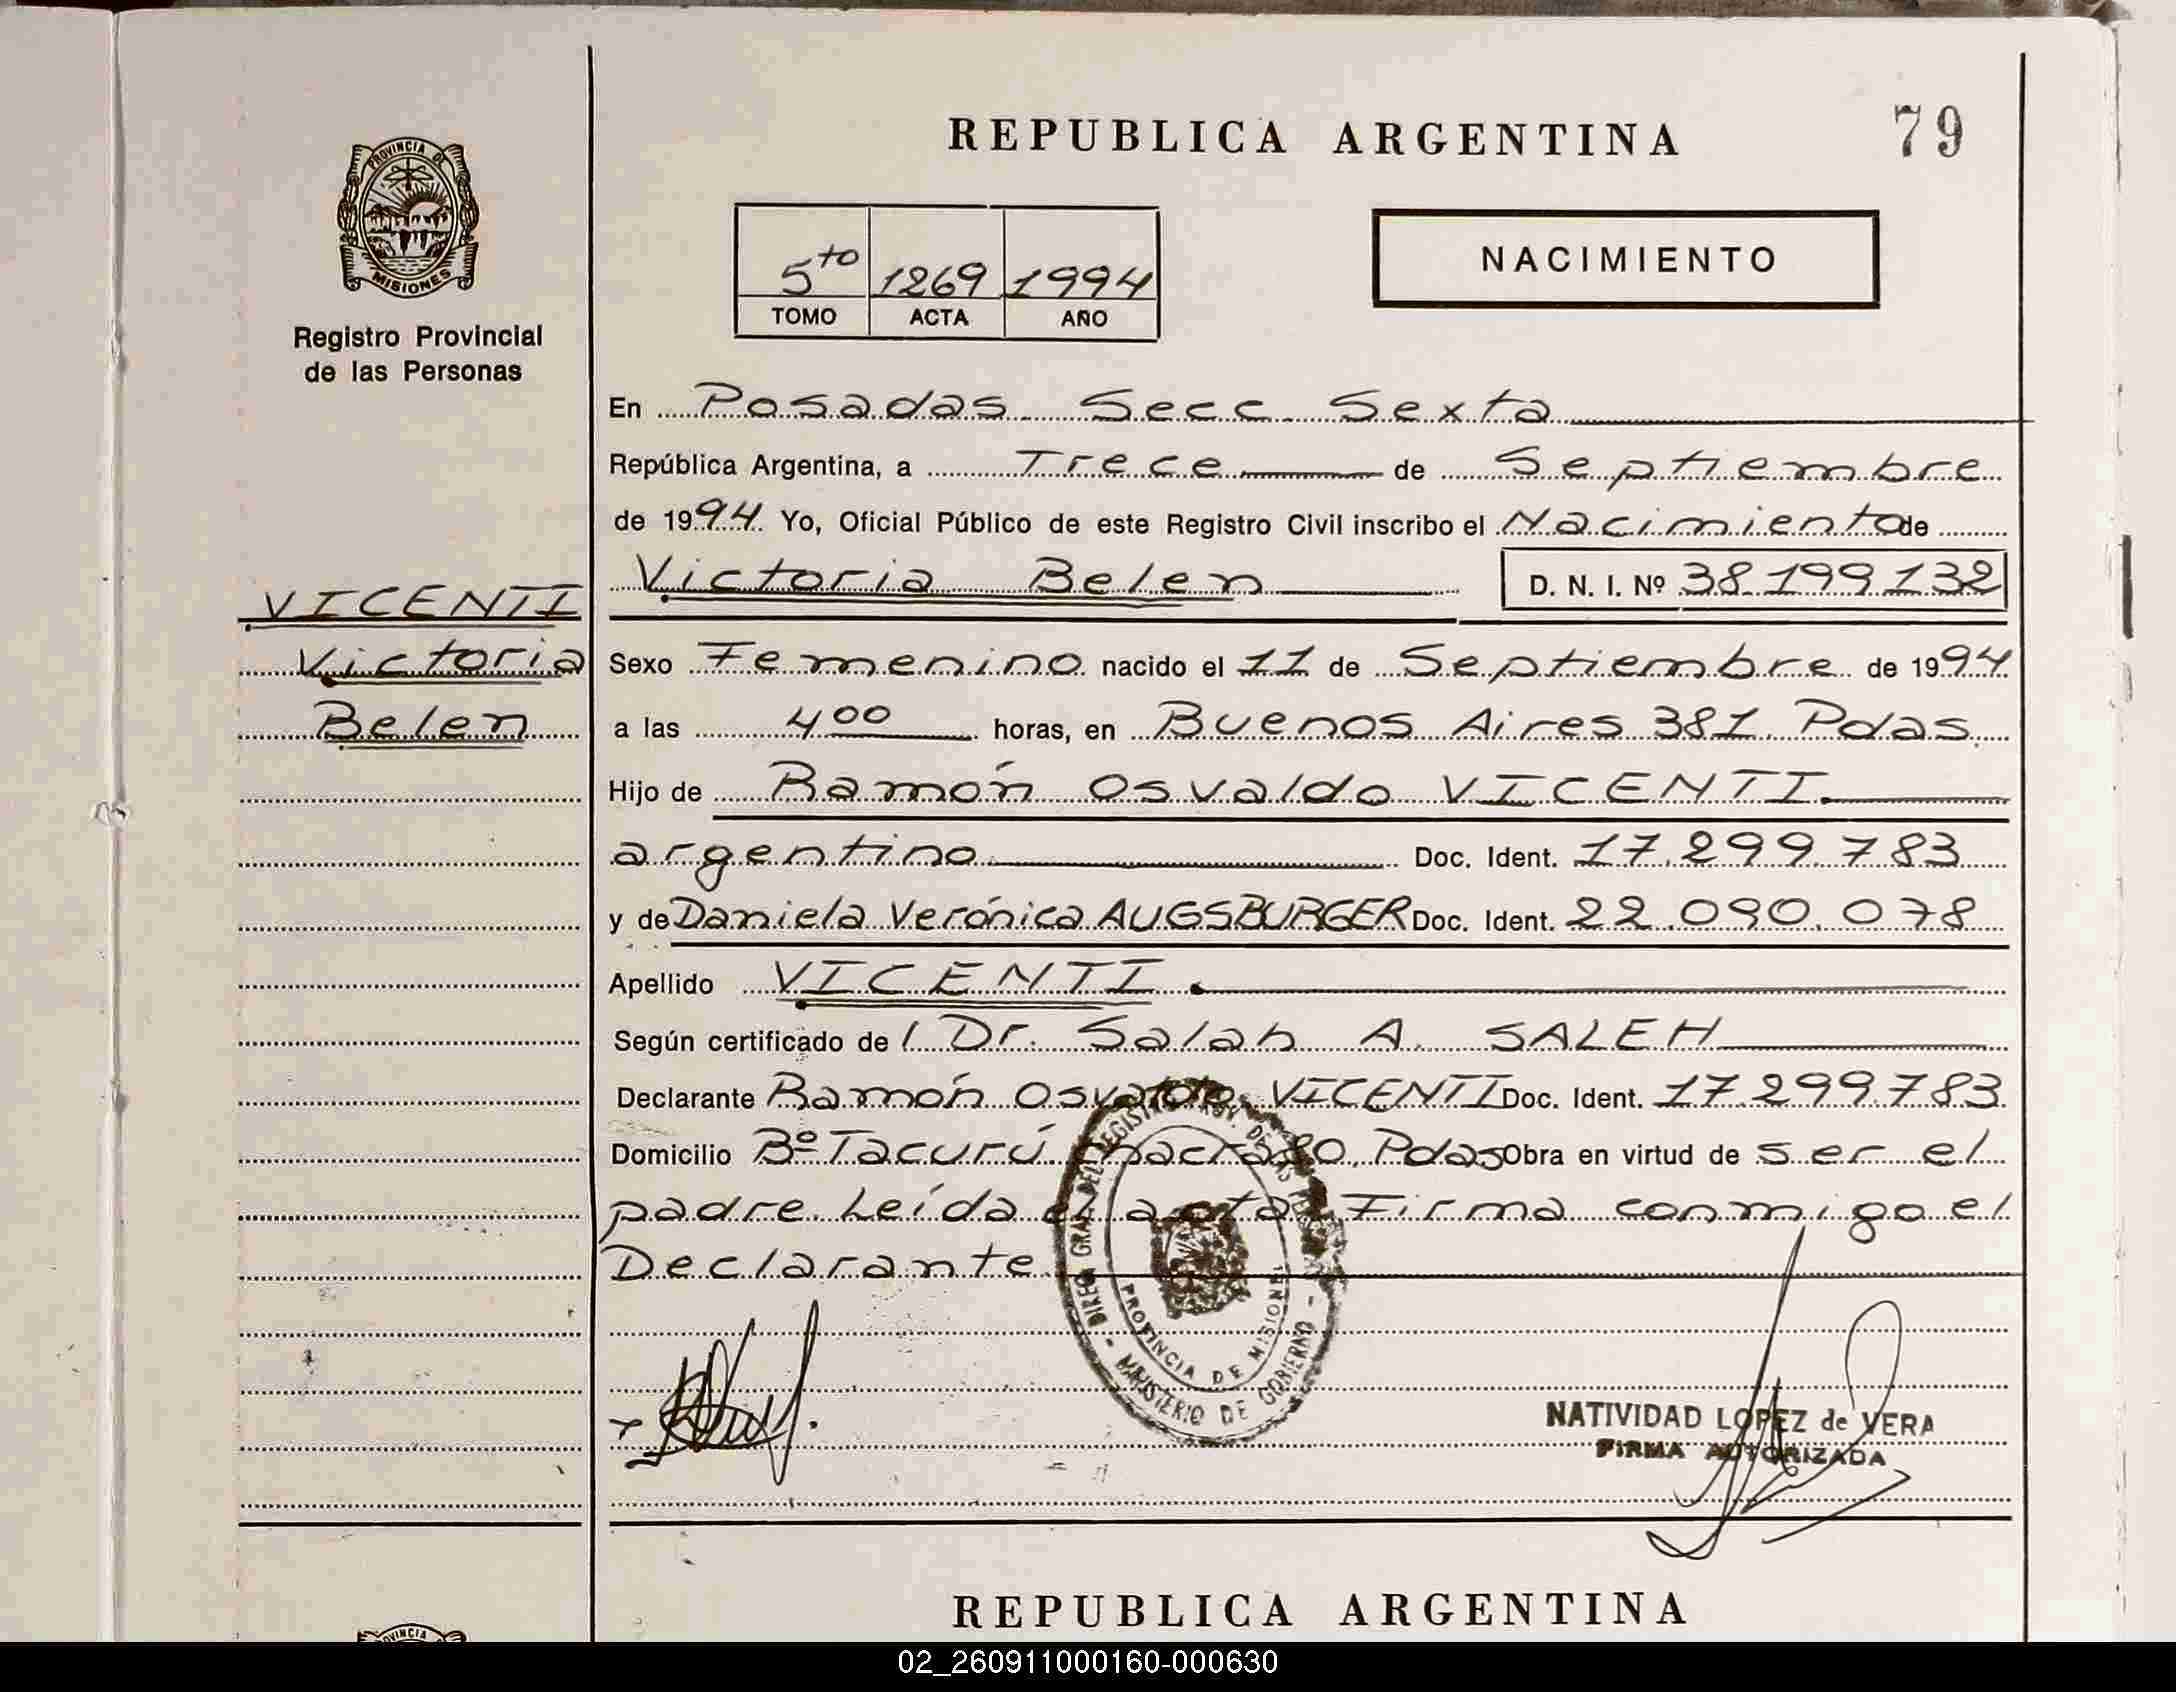 REPUBLICA ARGENTINA
79
PROVINCIA DE
MISIONES
Registro Provincial
de las Personas
5to 1269 1994
TOMO ACTA AÑO
NACIMIENTO
En Posadas Secc. Sexta
República Argentina, a Trece de Septiembre
de 1994. Yo, Oficial Público de este Registro Civil inscribo el Nacimiento de
Victoria Belen D. N. I. Nº 38.199.132
VICENTI
Victoria
Belen
Sexo Femenino nacido el 11 de Septiembre de 1994
a las 4 00 horas, en Buenos Aires 381. Pdas.
Hijo de Ramón Osvaldo VICENTI.
argentino Doc. Ident. 17.299.783
y de Daniela Verónica AUGSBURGER Doc. Ident. 22.090.078
Apellido VICENTI.
Según certificado de l Dr. Salah A. SALEH
Declarante Ramón Osvaldo VICENTI Doc. Ident. 17.299.783
Domicilio Bº Tacurú Pdas Obra en virtud de ser el
padre. Leída el acta Firma conmigo el
Declarante.
PROVINCIA DE MISIONES
MINISTERIO DE GOBIERNO
NATIVIDAD LOPEZ de VERA
FIRMA AUTORIZADA
REPUBLICA ARGENTINA
02_260911000160-000630